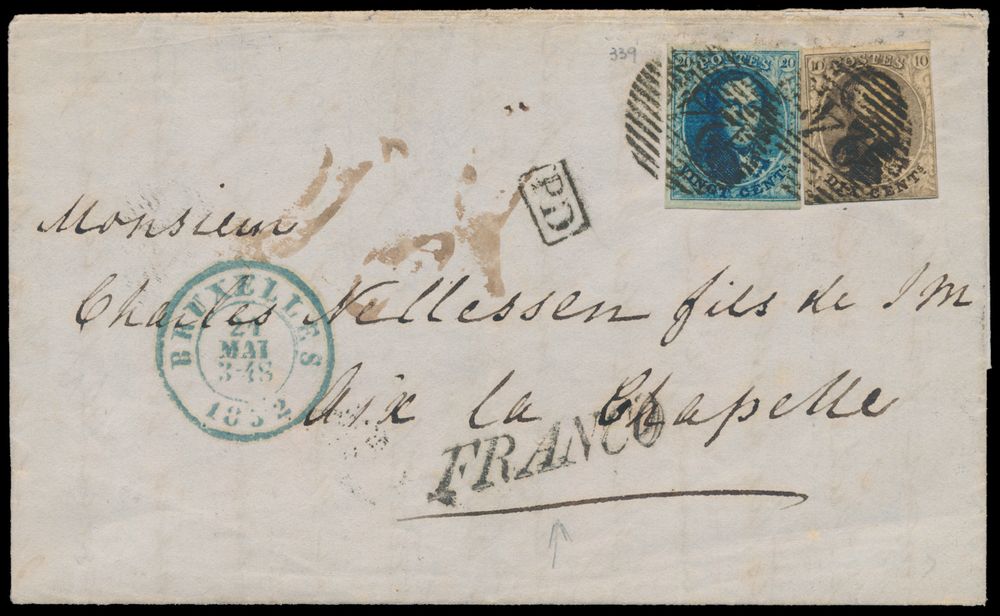 339
20 POSTES 20
VINGT CENTS
10 POSTES 10
DIX CENTS
PD
Monsieur
Charles Nellessen fils de J M
Aix la Chapelle
BRUXELLES
21
MAI
3-4S
1852
FRANCO